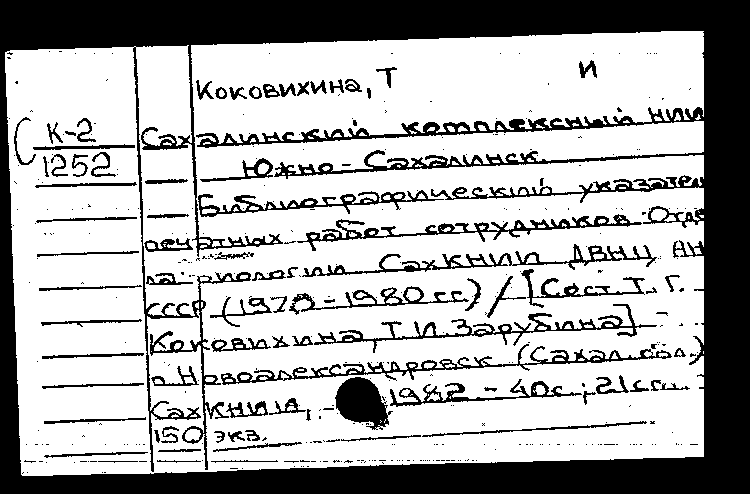 Коковихина, Т И
К-2
Сахалинский комплексный НИИ
1252
Южно-Сахалинск.
Библиографический указател
печатных работ сотрудников Отде
ла биологии СахКНИИ ДВНЦ АН
СССР (1970-1980 гг.) / [Сост. Т. Г.
Коковихина, Т.И. Зарубина] -
п. Новоалександровск (Сахал. обл.)
СахКНИИ, 1982. - 40с.; 21см.
150 экз.